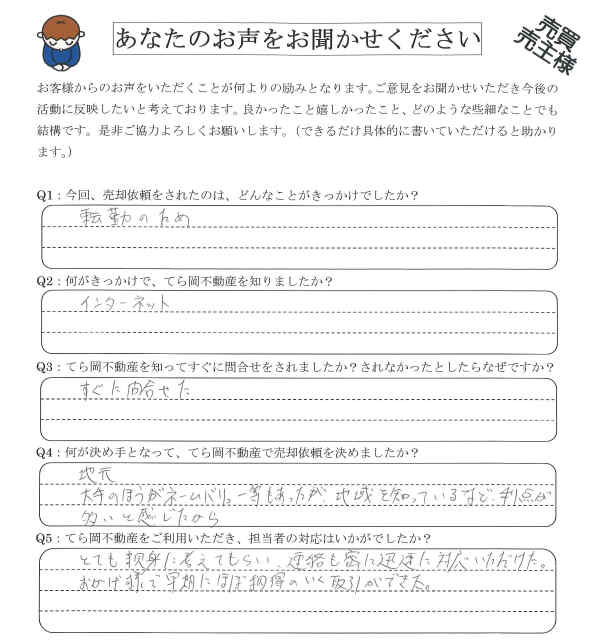 あなたのお声をお聞かせください
売買
売主様
お客様からのお声をいただくことが何よりの励みとなります。ご意見をお聞かせいただき今後の
活動に反映したいと考えております。良かったこと嬉しかったこと、どのような些細なことでも
結構です。是非ご協力よろしくお願いします。（できるだけ具体的に書いていただけると助かり
ます。）
Q1：今回、売却依頼をされたのは、どんなことがきっかけでしたか？
転勤のため
Q2：何がきっかけで、てら岡不動産を知りましたか？
インターネット
Q3：てら岡不動産を知ってすぐに問合せをされましたか？されなかったとしたらなぜですか？
すぐに問合せた
Q4：何が決め手となって、てら岡不動産で売却依頼を決めましたか？
地元
大手のほうがネームバリュー等もあったが、地域を知っているなど、利点が
多いと感じたから
Q5：てら岡不動産をご利用いただき、担当者の対応はいかがでしたか？
とても親身に考えてもらい、連絡も密に迅速に対応いただけた。
おかげ様で早期にほぼ納得のいく取引ができた。